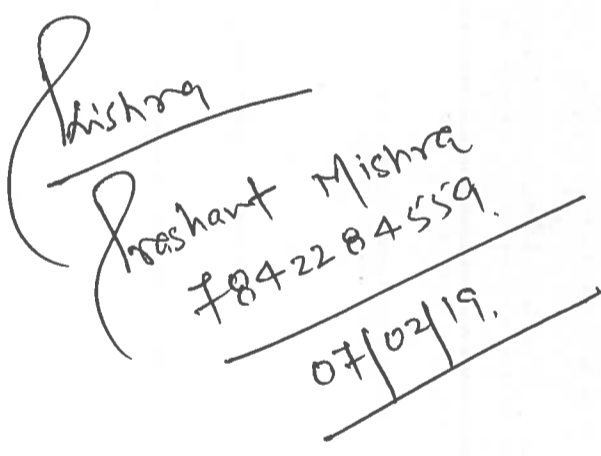 PMishra
Prashant Mishra
7842284559.
07/02/19.